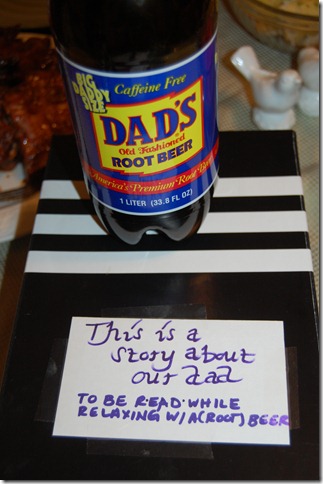 BIG
DADDY
SIZE
Caffeine Free
DAD'S
Old Fashioned
ROOT BEER
America's Premium Root Beer
1 LITER (33.8 FL OZ)
This is a
story about
our dad
TO BE READ WHILE
RELAXING W/ A (ROOT) BEER